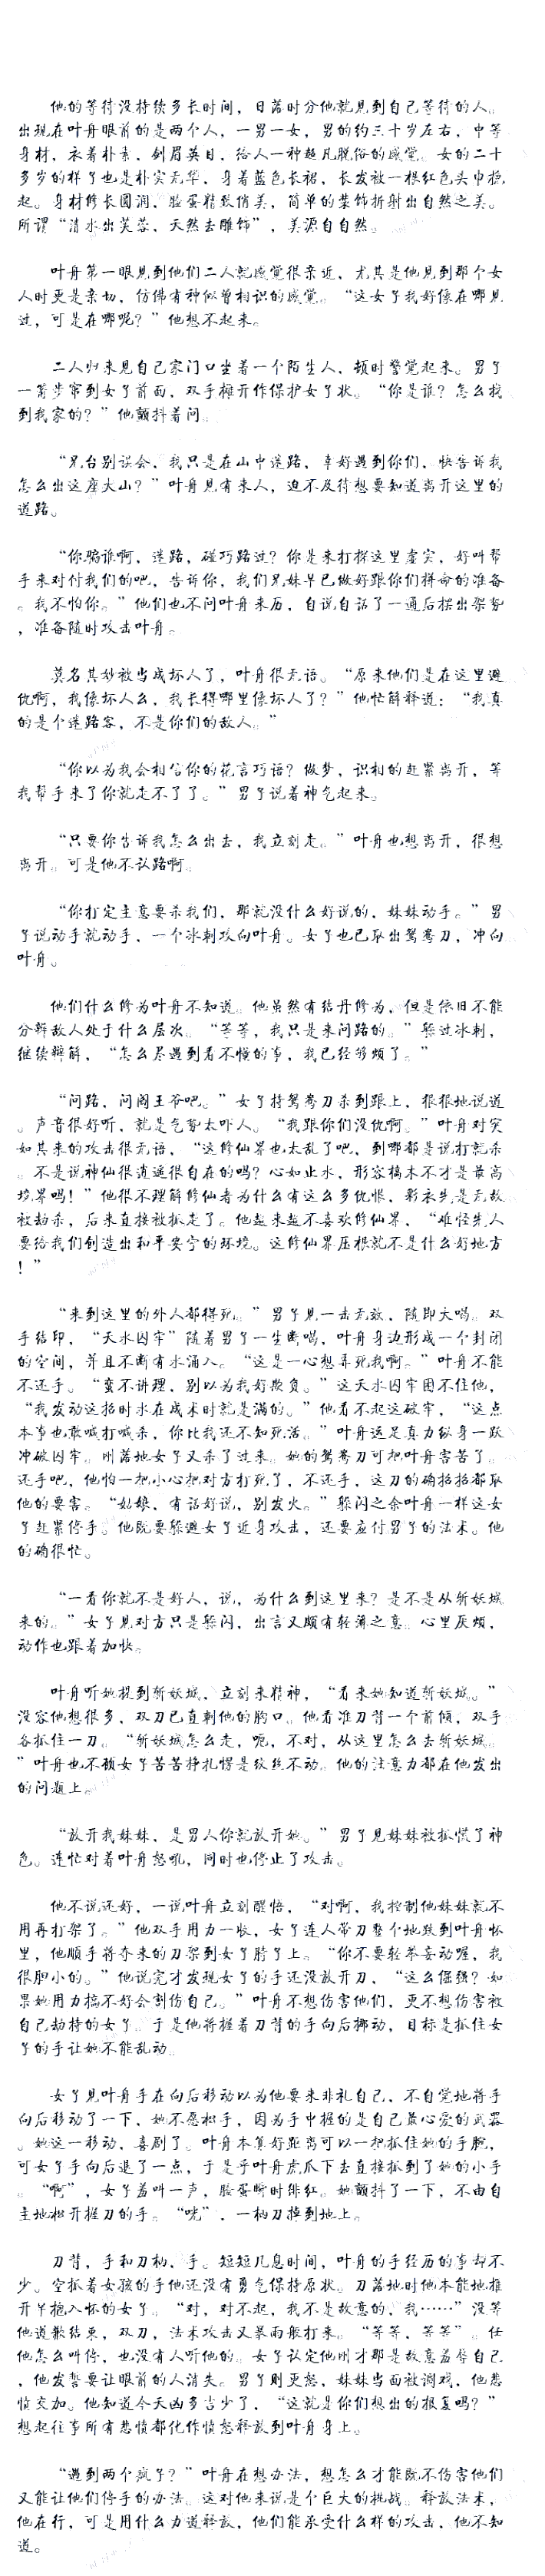 他的等待没持续多长时间，日落时分他就见到自己等待的人。
出现在叶舟眼前的是两个人，一男一女，男的约三十岁左右，中等
身材，衣着朴素，剑眉英目，给人一种超凡脱俗的感觉。女的二十
多岁的样子也是朴实无华，身着蓝色长裙，长发被一根红色头巾挽
起。身材修长圆润，脸蛋精致俏美，简单的装饰折射出自然之美。
所谓“清水出芙蓉，天然去雕饰”，美源自自然。
叶舟第一眼见到他们二人就感觉很亲近，尤其是他见到那个女
人时更是亲切，仿佛有种似曾相识的感觉。“这女子我好像在哪见
过，可是在哪呢？”他想不起来。
二人归来见自己家门口坐着一个陌生人，顿时警觉起来。男子
一箭步窜到女子前面，双手摊开作保护女子状。“你是谁？怎么找
到我家的？”他颤抖着问。
“兄台别误会，我只是在山中迷路，幸好遇到你们，快告诉我
怎么出这座大山？”叶舟见有来人，迫不及待想要知道离开这里的
道路。
“你骗谁啊，迷路，碰巧路过？你是来打探这里虚实，好叫帮
手来对付我们的吧，告诉你，我们兄妹早已做好跟你们拼命的准备
。我不怕你。”他们也不问叶舟来历，自说自话了一通后摆出架势
，准备随时攻击叶舟。
莫名其妙被当成坏人了，叶舟很无语。“原来他们是在这里避
仇啊，我像坏人么，我长得哪里像坏人了？”他忙解释道：“我真
的是个迷路客，不是你们的敌人。”
“你以为我会相信你的花言巧语？做梦，识相的赶紧离开，等
我帮手来了你就走不了了。”男子说着神气起来。
“只要你告诉我怎么出去，我立刻走。”叶舟也想离开，很想
离开。可是他不认路啊。
“你打定主意要杀我们，那就没什么好说的，妹妹动手。”男
子说动手就动手，一个冰刺攻向叶舟。女子也已取出鸳鸯刀，冲向
叶舟。
他们什么修为叶舟不知道。他虽然有结丹修为，但是依旧不能
分辨敌人处于什么层次。“等等，我只是来问路的。”躲过冰刺，
继续辩解，“怎么尽遇到看不懂的事，我已经够烦了。”
“问路，问阎王爷吧。”女子持鸳鸯刀杀到跟上，狠狠地说道
。声音很好听，就是气势太吓人。“我跟你们没仇啊。”叶舟对突
如其来的攻击很无语，“这修仙界也太乱了吧，到哪都是说打就杀
。不是说神仙很逍遥很自在的吗？心如止水，形容槁木不才是最高
境界吗！”他很不理解修仙者为什么有这么多仇恨，彩衣先是无故
被劫杀，后来直接被抓走了。他越来越不喜欢修仙界，“难怪先人
要给我们创造出和平安宁的环境。这修仙界压根就不是什么好地方
！”
“来到这里的外人都得死。”男子见一击无效，随即大喝。双
手结印，“天水囚牢”随着男子一生断喝，叶舟身边形成一个封闭
的空间，并且不断有水涌入。“这是一心想弄死我啊。”叶舟不能
不还手。“蛮不讲理，别以为我好欺负。”这天水囚牢困不住他，
“我发动这招时水在战术时就是满的。”他看不起这破牢，“这点
本事也敢喊打喊杀，你比我还不知死活。”叶舟运足真力纵身一跃
冲破囚牢。刚落地女子又杀了过来。她的鸳鸯刀可把叶舟害苦了。
还手吧，他怕一把小心把对方打死了，不还手，这刀的确招招都取
他的要害。“姑娘，有话好说，别发火。”躲闪之余叶舟一样这女
子赶紧停手。他既要躲避女子近身攻击，还要应付男子的法术。他
的确很忙。
“一看你就不是好人，说，为什么到这里来？是不是从斩妖城
来的。”女子见对方只是躲闪，出言又颇有轻薄之意。心里厌烦，
动作也跟着加快。
叶舟听她提到斩妖城，立刻来精神，“看来她知道斩妖城。”
没容他想很多，双刀已直刺他的胸口。他看准刀背一个前倾，双手
各抓住一刀。“斩妖城怎么走，呃，不对，从这里怎么去斩妖城。
”叶舟也不顾女子苦苦挣扎愣是纹丝不动。他的注意力都在他发出
的问题上。
“放开我妹妹，是男人你就放开她。”男子见妹妹被抓慌了神
色。连忙对着叶舟怒吼，同时也停止了攻击。
他不说还好，一说叶舟立刻醒悟，“对啊，我控制他妹妹就不
用再打架了。”他双手用力一收，女子连人带刀整个地跌到叶舟怀
里，他顺手将夺来的刀架到女子脖子上。“你不要轻举妄动喔，我
很胆小的。”他说完才发现女子的手还没放开刀，“这么倔强？如
果她用力搞不好会割伤自己。”叶舟不想伤害他们，更不想伤害被
自己劫持的女子。于是他将握着刀背的手向后挪动，目标是抓住女
子的手让她不能乱动。
女子见叶舟手在向后移动以为他要来非礼自己，不自觉地将手
向后移动了一下，她不愿松手，因为手中握的是自己最心爱的武器
。她这一移动，喜剧了。叶舟本算好距离可以一把抓住她的手腕，
可女子手向后退了一点，于是乎叶舟虎爪下去直接抓到了她的小手
。“啊”，女子羞叫一声，脸蛋瞬时绯红。她颤抖了一下，不由自
主地松开握刀的手。“咣”，一柄刀掉到地上。
刀背，手和刀柄，手。短短几息时间，叶舟的手经历的事却不
少。空抓着女孩的手他还没有勇气保持原状。刀落地时他本能地推
开早抱入怀的女子。“对，对不起，我不是故意的，我……”没等
他道歉结束，双刀，法术攻击又暴雨般打来。“等等，等等”。任
他怎么叫停，也没有人听他的。女子认定他刚才那是故意羞辱自己
，他发誓要让眼前的人消失。男子则更怒，妹妹当面被调戏，他悲
愤交加。他知道今天凶多吉少了，“这就是你们想出的报复吗？”
想起往事所有悲愤都化作愤怒释放到叶舟身上。
“遇到两个疯子？”叶舟在想办法，想怎么才能既不伤害他们
又能让他们停手的办法。这对他来说是个巨大的挑战。释放法术，
他在行，可是用什么力道释放，他们能承受什么样的攻击，他不知
道。